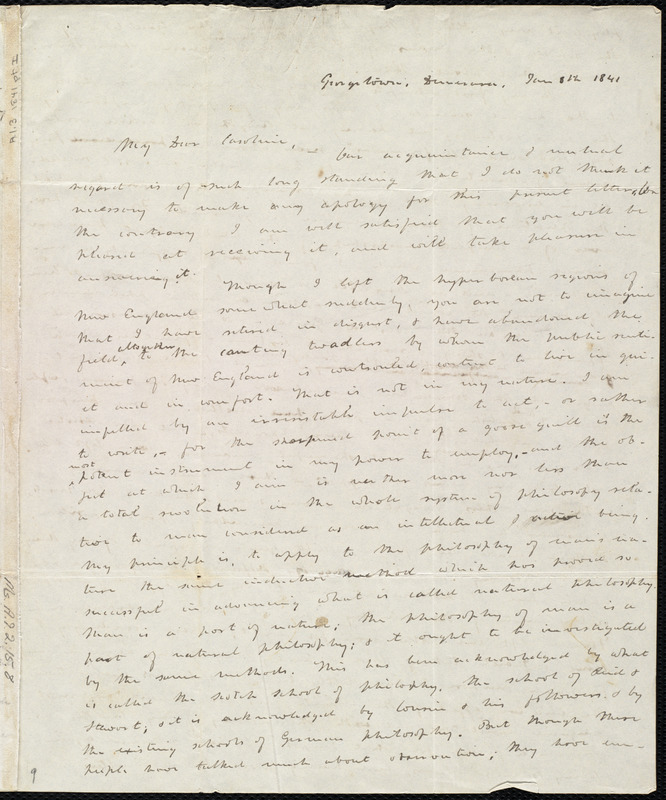 Georgetown, Demerara, Jan 8th 1841
My Dear Caroline, – Our acquaintance & mutual
regard is of such long standing that I do not think it
necessary to make any apology for this present letter, on
the contrary I am well satisfied that you will be
pleased at receiving it, and will take pleasure in
answering it.
Though I left the hyperborean regions of
New England somewhat suddenly, you are not to imagine
that I have retired in disgust, & have abandoned the
field, altogether to the canting by whom the public senti-
ment of New England is controuled, content to live in qui-
et and in comfort. That is not in my nature. I am
impelled by an irresistable impulse to act, – or rather
to write, – for the sharpened point of a goose quill is the
most potent instrument in my power to employ, – and the ob-
ject at which I aim is neither more nor less than
a total revolution in the whole system of philosophy rela-
tive to man considered as an intellectual & active being.
My principle is, to apply to the philosophy of man's na-
ture the same inductive method which has proved so
successful in advancing what is called natural philosophy.
Man is a part of nature; the philosophy of man is a
part of natural philosophy; & it ought to be investigated
by the same methods. This has been acknowledged by what
is called the Scotch school of philosophy. The school of Reid &
Stewart; & it is acknowledged by Cousin & his followers & by
the existing schools of German philosophy. But though these
people have talked much about observation, they have em-
9
Ms. A.9.2.15.8
A1.3 1841